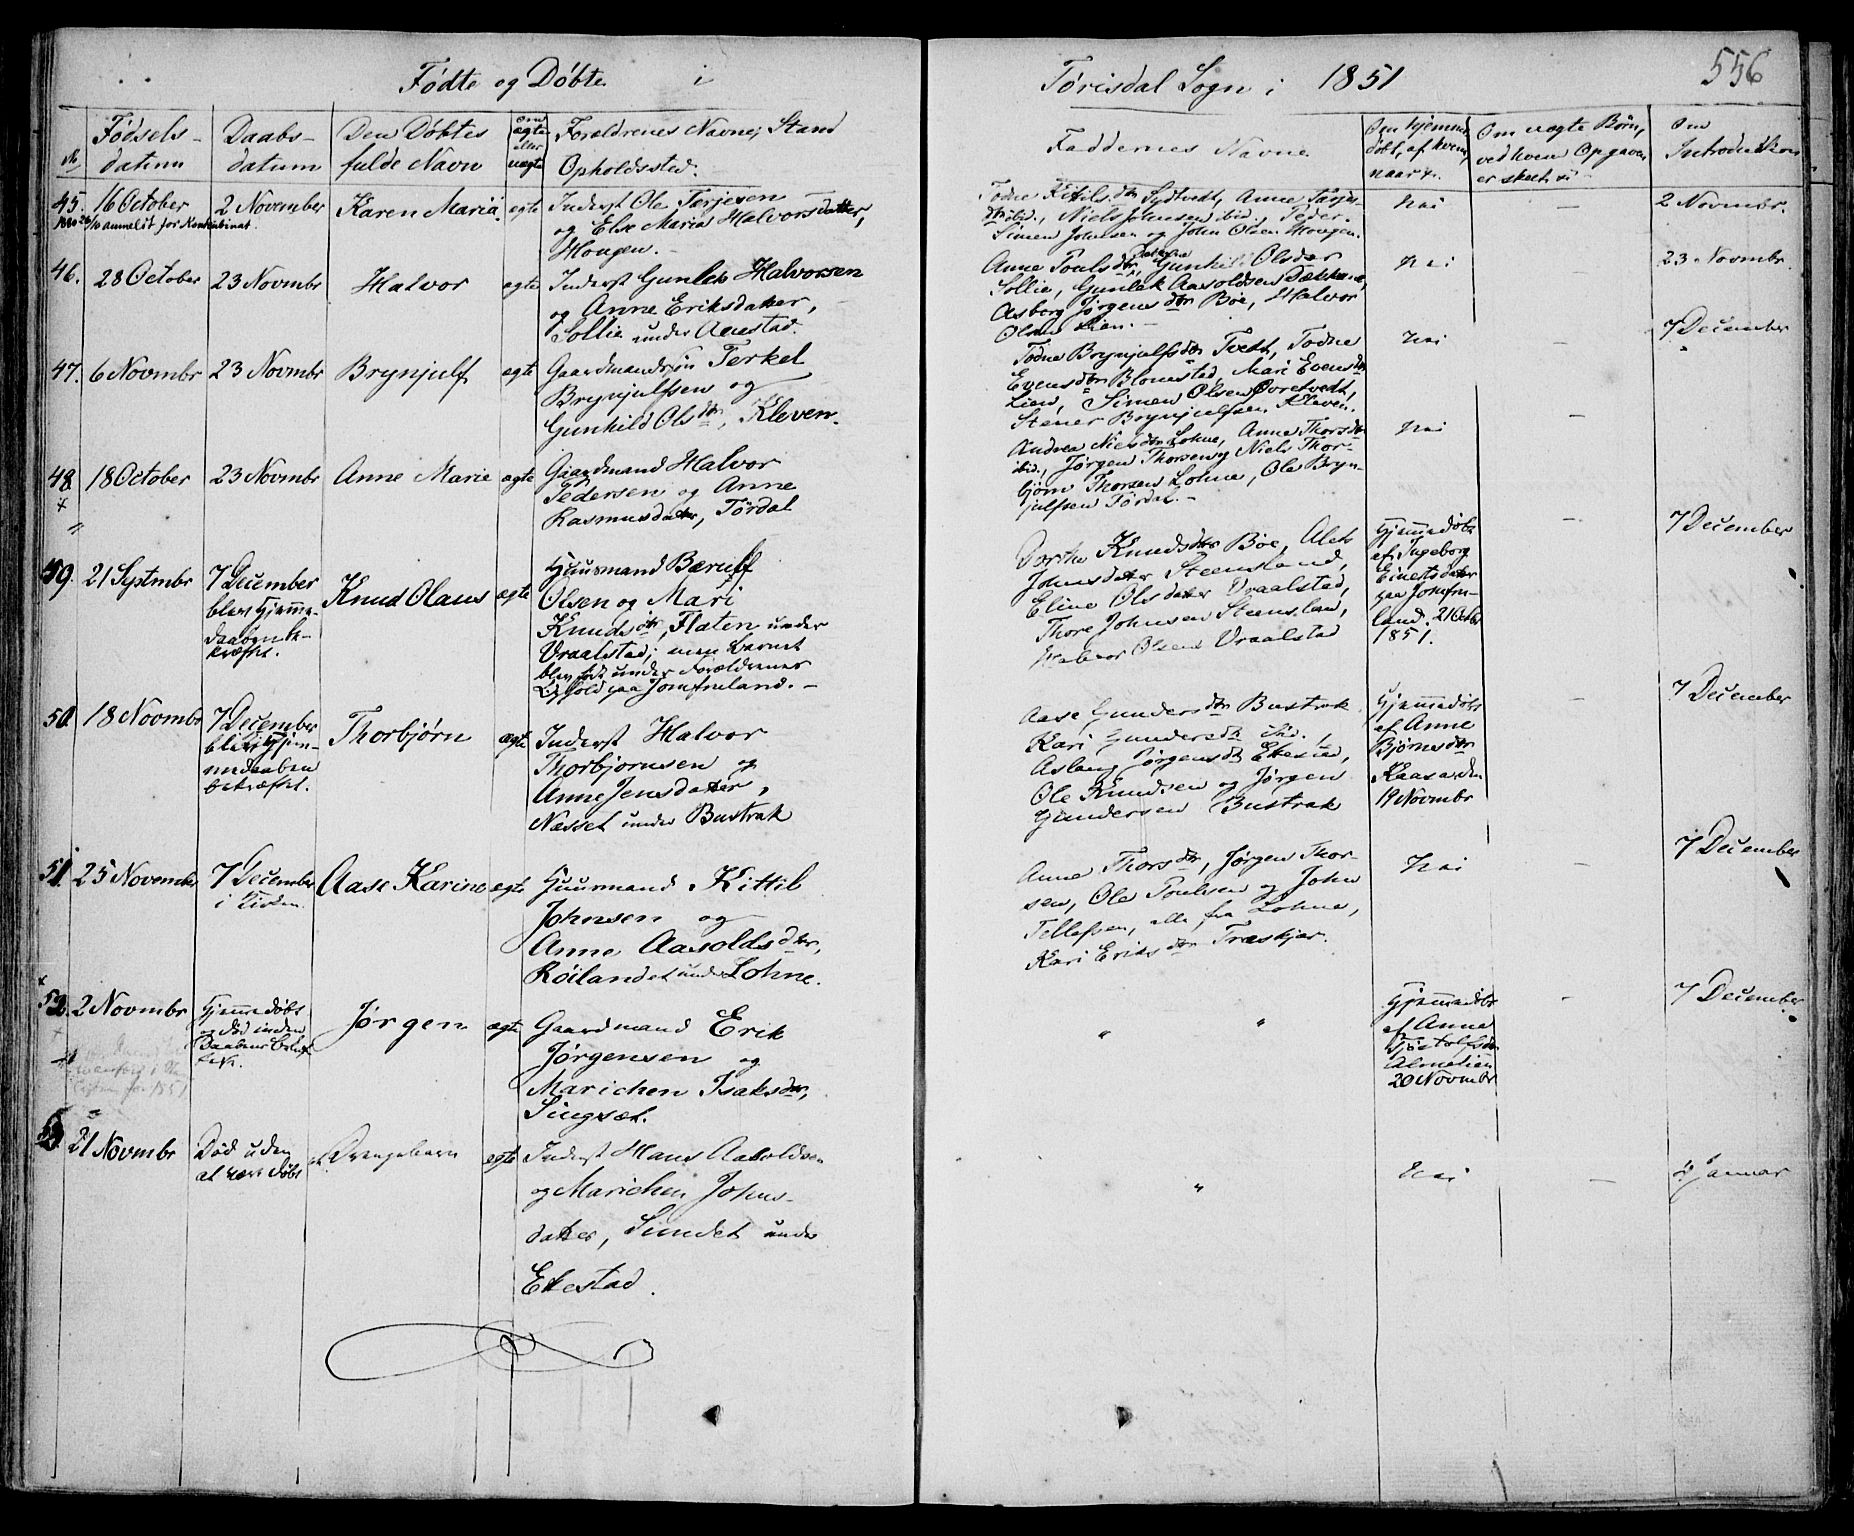 Fødte og Døbte i
Tørisdal Sogn i 1851
556
№
Fødsels-
datum
Daabs-
datum
Den Døbtes
fulde Navn
om
ægte
eller
uægte
Forældrenes Navne, Stand
Opholdssted.
Faddernes Navne
Om hjemme
døbt, af hvem,
naar &.
Om uægte Børn,
ved hvem Opgaven
er skeet &
Om
Introduktion
45.
16 October
anmeldt for Konkubinat.
2 November
Karen Maria
ægte
Inderst Ole Terjesen
og Else Maria Halvorsdatter,
Hougen.
Todne Kittils dtr Sydtvedt, Anne
ibid., Niels Johnsen ibid., Peder
Simen Johnsen og John Olsen Hougen.
nei
-
2 Novmbr.
46.
28 October
23 Novmbr
Halvor
ægte
Inderst Gunlek Halvorsen
og Anne Eriksdatter,
Sollie under Aanstad.
Anne Pouls dtr, Gunhild Olsdtr
Sollie, Gunlek Aasoldsen
Asborg Jørgens dtr Bøe, Halvor
Olsen Lien. -
nei
23 Novmbr.
47.
6 Novmbr
23 Novmbr
Brynjulf
ægte
Gaardmandssøn Terkel
Brynjulfsen og
Gunhild Ols dtr, Kleven.
Todne Brynjulfs dtr Tvedt, Todne
Evens dtr Blomstad, Mari Evens dtr
Lien, Simen Olsen Øvretvedt,
Stener Brynjulfsen Kleven.
nei
-
7 December
48.
18 October
23 Novmbr
Anne Marie
ægte
Gaardmand Halvor
Pedersen og Anne
Rasmusdatter, Tördal
Andrea Niels dtr Lohne, Anne Thors dtr
ibid., Jørgen Thorsen og Niels Thor-
bjørn Thorsen Lohne, Ole Bryn-
julfsen Tördal. -
nei
-
49.
21 Septmbr
7 December
blev Hjemme-
daaben be-
kræftet.
Knud Olaus
ægte
Huusmand Bærulf
Olsen og Mari
Knuds dtr, Flaten under
Vraalstad; men Barnet
blev født under Forældrenes
Ophold paa Jomfruland. -
Dorthe Knuds dtr Bøe, Alet
Johnsdatter Steensland,
Eline Olsdatter Vraalstad,
Thore Johnsen Steensland,
Halvor Olsen Vraalstad
Hjemmedøbt
af Ingeborg
Einertsdatter
paa Jomfru-
land. 21 Octbr
1851.
-
7 December
50.
18 Novmbr
7 December
blev Hjem-
medaaben
bekræftet.
Thorbjørn
ægte
Inderst Halvor
Thorbjørnsen og
Anne Jensdatter,
Næsset under Bustrak
Aase Gunders dtr Bustrak
Kari Gundersdtr ibid.,
Aslaug Jørgensdtr Ekestad,
Ole Knudsen og Jørgen
Gundersen Bustrak
Hjemmedøbt
af Anne
Bjørnsdtr
Kaasa den
19 Novmbr
-
7 December
51.
25 November
7 December
i Kirken.
Aase Karine
ægte
Huusmand Kittil
Johnsen og
Anne Aasolds dtr,
Röilandet under Lohne.
Anne Thors dtr, Jørgen Thor-
sen, Ole Poulsen og John
Tellefsen, alle fra Lohne,
Kari Eriks dtr Træskjær.
nei
-
7 December
52.
2 Novmbr
Hjemmedøbt
og død inden
Daabens
Jørgen
ægte
Gaardmand Erik
Jørgensen og
Marichen Isaks dtr,
Singsæt.
"
"
Hjemmedøbt
af Anne
20 Novmbr
-
7 December
21 Novmbr
Død uden
at være døbt
Drengebarn
ægte
Inderst Hans Aasoldsen
og Marichen Johns-
datter, Sundet under
Ekestad.
"
Nei
-
Januar